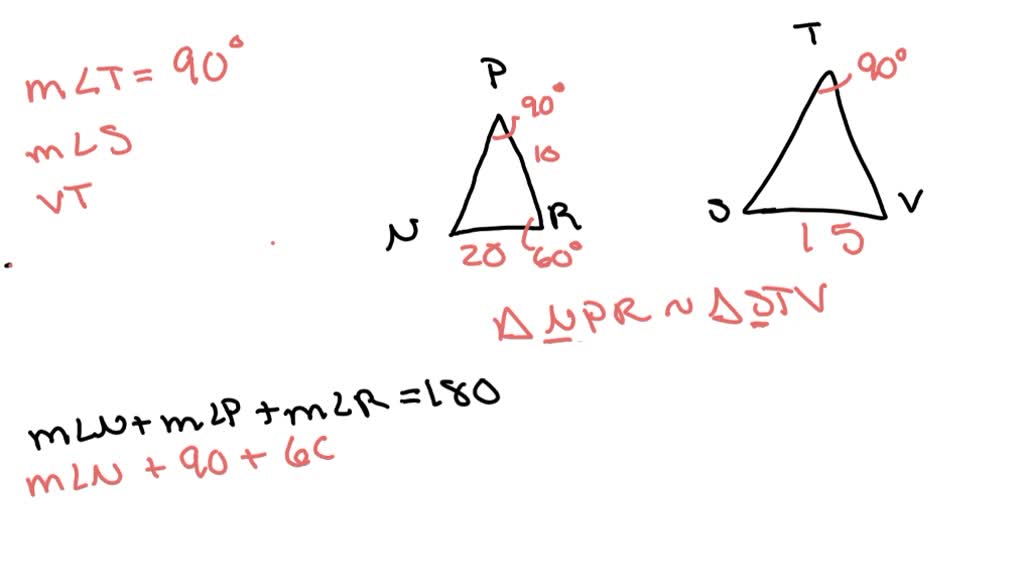 m∠T = 90°
m∠S
VT
P
90°
10
N
R
20
60°
T
90°
S
V
15
Δ NPR ~ Δ STV
m∠N + m∠P + m∠R = 180
m∠N + 90 + 6C